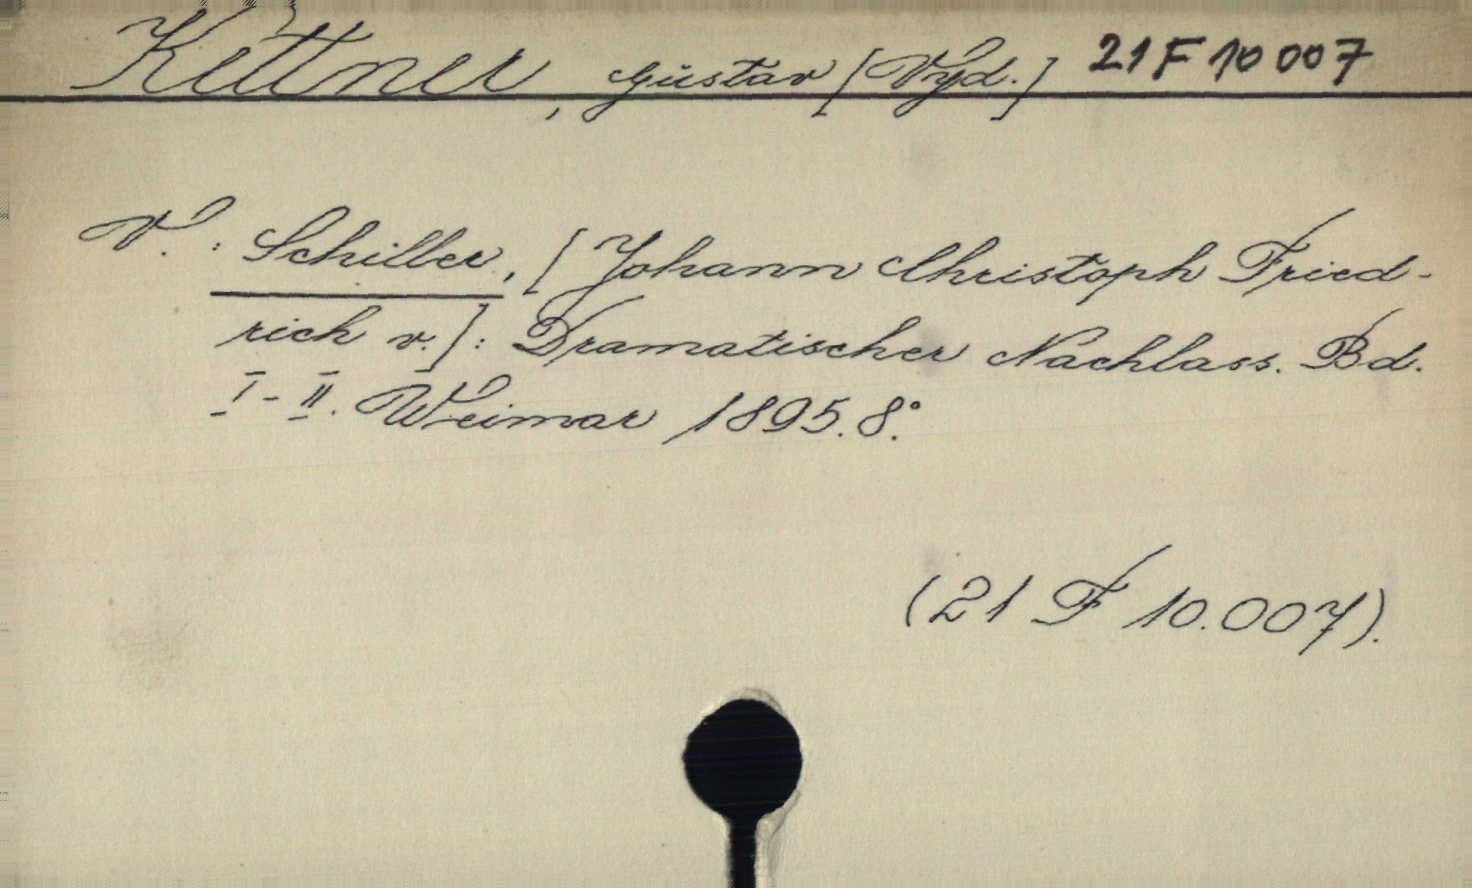 Kettner, Gustav [Vyd.] 21 F 10 007
V.: Schiller, [Johann Christoph Fried-
rich v.]: Dramatischer Nachlass. Bd.
I-II. Weimar 1895. 8°.
(21 F 10.007).